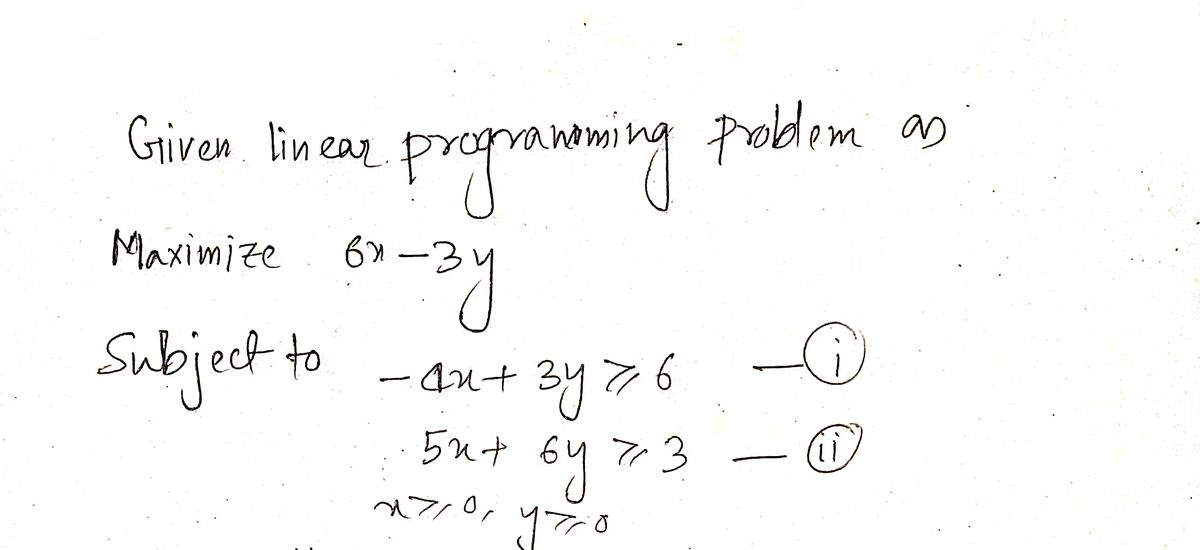 Given linear programming problem as
Maximize 6x - 3y
Subject to
-4x + 3y ≥ 6 — (i)
5x + 6y ≥ 3 — (ii)
x ≥ 0, y ≥ 0